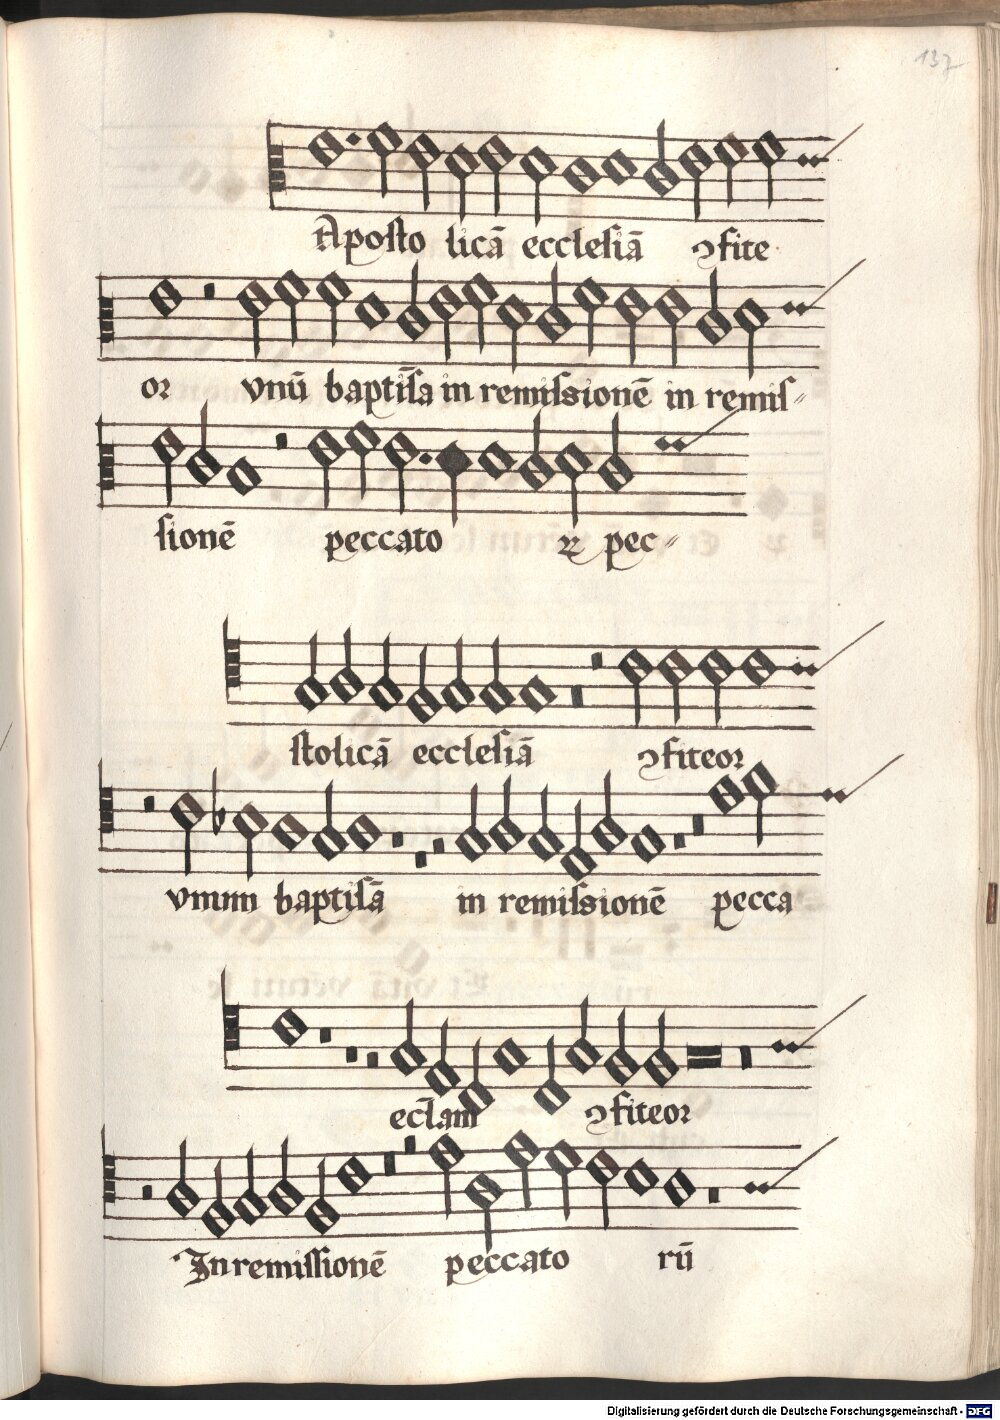 137
Aposto licā ecclesiā ꝯfite
or vnū baptisā in remissionē in remis⸗
sionē peccato ꝝ pec⸗
stolicā ecclesiā ꝯfiteor
vnum baptisā in remissionē pecca
eclam ꝯfiteor
In remissionē peccato rū
Digitalisierung gefördert durch die Deutsche Forschungsgemeinschaft - DFG